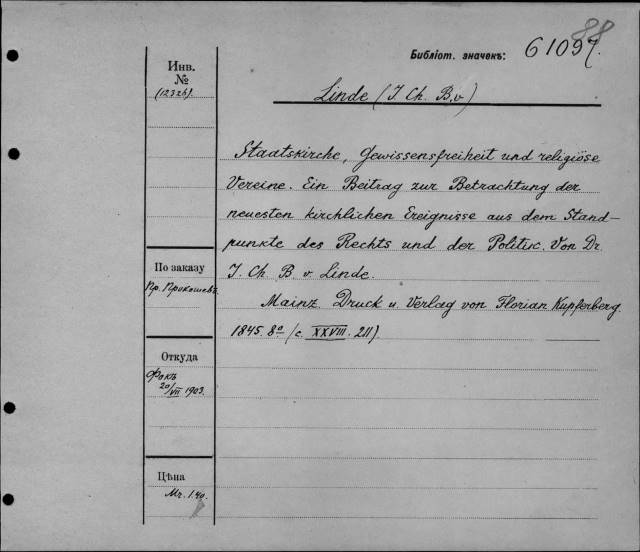 88
Библіот. значекъ: 61097.
Инв.
№
(12326)
Linde (J. Ch. B. v)
Staatskirche, Gewissensfreiheit und religiöse
Vereine. Ein Beitrag zur Betrachtung der
neuesten kirchlichen Ereignisse aus dem Stand-
punkte des Rechts und der Politik. Von Dr.
J. Ch. B. v. Linde.
Mainz. Druck u. Verlag von Florian Kupferberg.
1845. 8° (c. XXVIII. 211).
По заказу
Пр. Прокошевъ
Откуда
Фокъ
20/VII 1903.
Цѣна
Mr. 1.40.